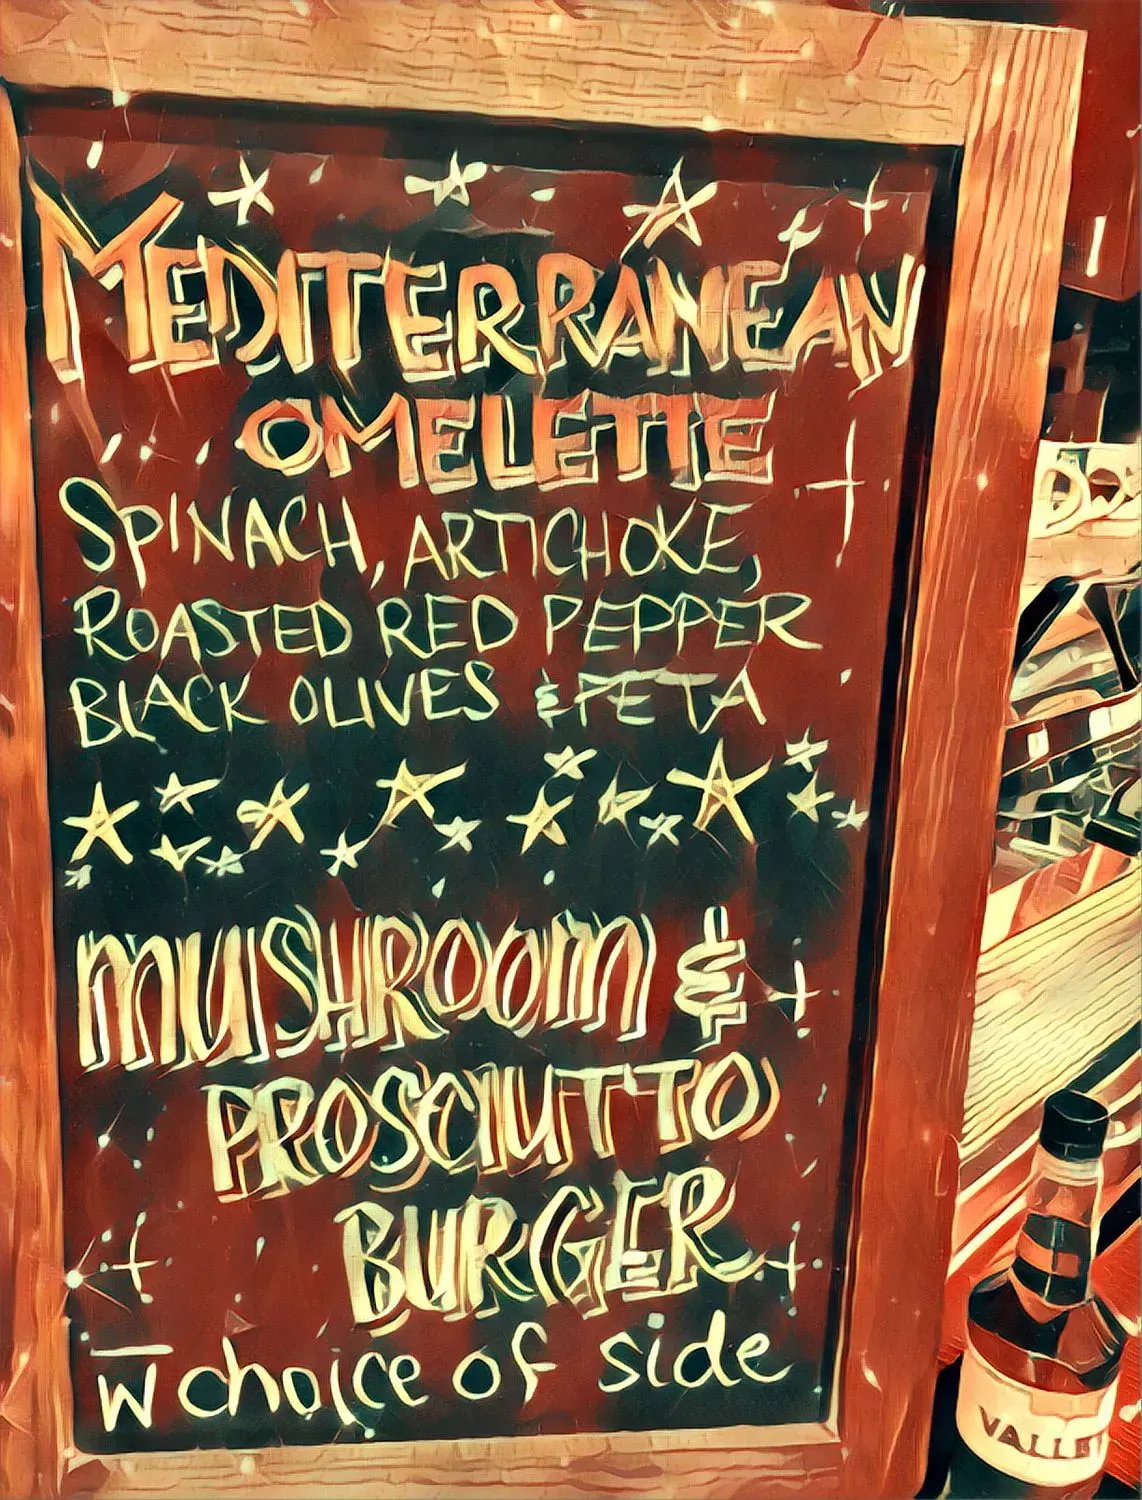 MEDITERRANEAN
OMELETTE
SPINACH, ARTICHOKE,
ROASTED RED PEPPER
BLACK OLIVES & FETA
MUSHROOM &
PROSCIUTTO
BURGER
w choice of side